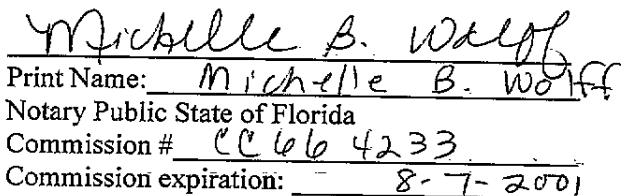 Michelle B. Wolff
Print Name: Michelle B. Wolff
Notary Public State of Florida
Commission # CC664233
Commission expiration: 8-7-2001